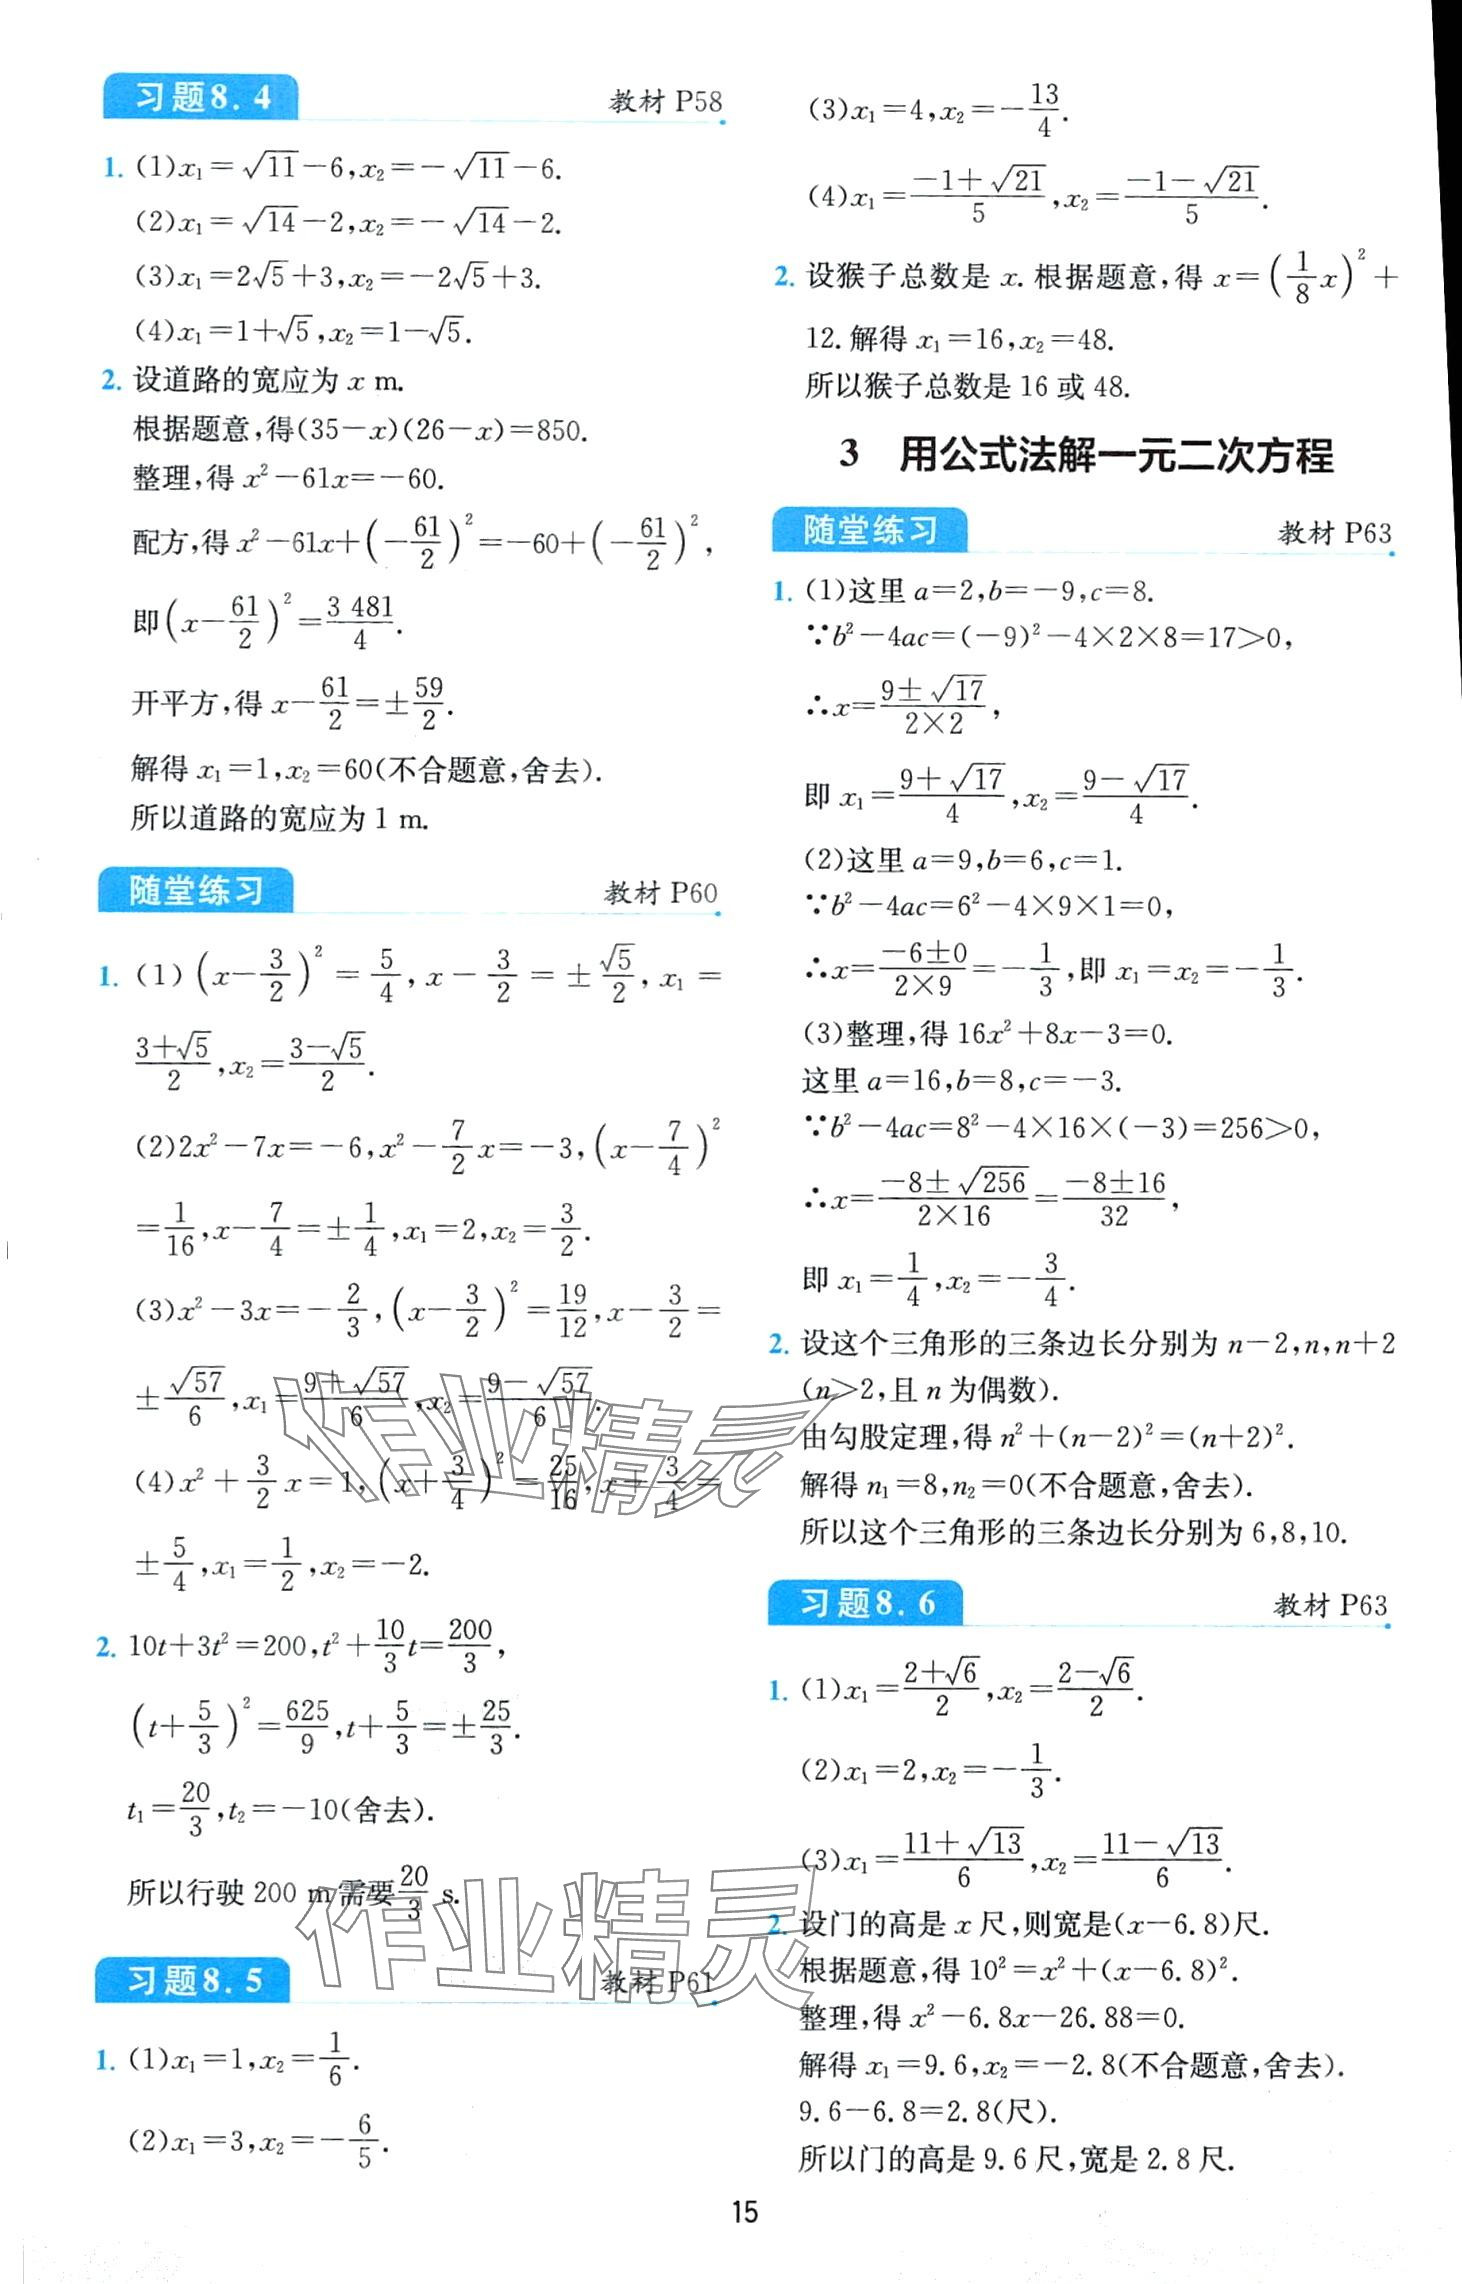 习题8.4 教材 P58
1. (1)x₁=√11−6,x₂=−√11−6.
(2)x₁=√14−2,x₂=−√14−2.
(3)x₁=2√5+3,x₂=−2√5+3.
(4)x₁=1+√5,x₂=1−√5.
2. 设道路的宽应为 x m.
根据题意,得(35−x)(26−x)=850.
整理,得 x²−61x=−60.
配方,得 x²−61x+(−61/2)²=−60+(−61/2)²,
即(x−61/2)²=3 481/4.
开平方,得 x−61/2=±59/2.
解得 x₁=1,x₂=60(不合题意,舍去).
所以道路的宽应为 1 m.
随堂练习 教材 P60
1. (1)(x−3/2)²=5/4,x−3/2=±√5/2,x₁=
(3+√5)/2,x₂=(3−√5)/2.
(2)2x²−7x=−6,x²−7/2x=−3,(x−7/4)²
=1/16,x−7/4=±1/4,x₁=2,x₂=3/2.
(3)x²−3x=−2/3,(x−3/2)²=19/12,x−3/2=
±√57/6,x₁=(9+√57)/6,x₂=(9−√57)/6.
(4)x²+3/2x=1,(x+3/4)²=25/16,x+3/4=
±5/4,x₁=1/2,x₂=−2.
2. 10t+3t²=200,t²+10/3t=200/3,
(t+5/3)²=625/9,t+5/3=±25/3.
t₁=20/3,t₂=−10(舍去).
所以行驶 200 m 需要20/3 s.
习题8.5 教材 P61
1. (1)x₁=1,x₂=1/6.
(2)x₁=3,x₂=−6/5.
(3)x₁=4,x₂=−13/4.
(4)x₁=(−1+√21)/5,x₂=(−1−√21)/5.
2. 设猴子总数是 x. 根据题意,得 x=(1/8x)²+
12.解得 x₁=16,x₂=48.
所以猴子总数是 16 或 48.
3 用公式法解一元二次方程
随堂练习 教材 P63
1. (1)这里 a=2,b=−9,c=8.
∵b²−4ac=(−9)²−4×2×8=17>0,
∴x=(9±√17)/(2×2),
即 x₁=(9+√17)/4,x₂=(9−√17)/4.
(2)这里 a=9,b=6,c=1.
∵b²−4ac=6²−4×9×1=0,
∴x=(−6±0)/(2×9)=−1/3,即 x₁=x₂=−1/3.
(3)整理,得 16x²+8x−3=0.
这里 a=16,b=8,c=−3.
∵b²−4ac=8²−4×16×(−3)=256>0,
∴x=(−8±√256)/(2×16)=(−8±16)/32,
即 x₁=1/4,x₂=−3/4.
2. 设这个三角形的三条边长分别为 n−2,n,n+2
(n>2,且 n 为偶数).
由勾股定理,得 n²+(n−2)²=(n+2)².
解得 n₁=8,n₂=0(不合题意,舍去).
所以这个三角形的三条边长分别为 6,8,10.
习题8.6 教材 P63
1. (1)x₁=(2+√6)/2,x₂=(2−√6)/2.
(2)x₁=2,x₂=−1/3.
(3)x₁=(11+√13)/6,x₂=(11−√13)/6.
2. 设门的高是 x 尺,则宽是(x−6.8)尺.
根据题意,得 10²=x²+(x−6.8)².
整理,得 x²−6.8x−26.88=0.
解得 x₁=9.6,x₂=−2.8(不合题意,舍去).
9.6−6.8=2.8(尺).
所以门的高是 9.6 尺,宽是 2.8 尺.
作业精灵
作业精灵
15